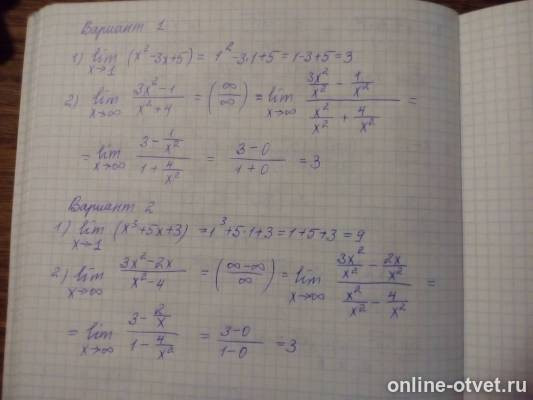 Вариант 1
1) lim x→1 (x² - 3x + 5) = 1² - 3·1 + 5 = 1 - 3 + 5 = 3
2) lim x→∞ (3x² - 1)/(x² + 4) = (∞/∞) = lim x→∞ (3x²/x² - 1/x²)/(x²/x² + 4/x²) =
= lim x→∞ (3 - 1/x²)/(1 + 4/x²) = (3 - 0)/(1 + 0) = 3
Вариант 2
1) lim x→1 (x³ + 5x + 3) = 1³ + 5·1 + 3 = 1 + 5 + 3 = 9
2) lim x→∞ (3x² - 2x)/(x² - 4) = ((∞ - ∞)/∞) = lim x→∞ (3x²/x² - 2x/x²)/(x²/x² - 4/x²) =
= lim x→∞ (3 - 2/x)/(1 - 4/x²) = (3 - 0)/(1 - 0) = 3
online-otvet.ru